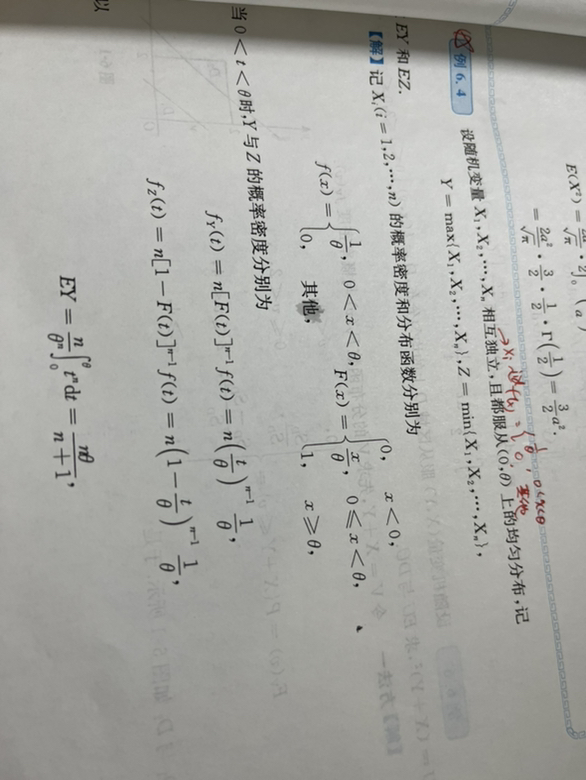 = 2a²/√π · 3/2 · 1/2 · Γ(1/2) = 3/2 a².
例 6.4 设随机变量 X₁,X₂,⋯,Xₙ 相互独立,且都服从(0,θ)上的均匀分布,记
Y = max{X₁,X₂,⋯,Xₙ},Z = min{X₁,X₂,⋯,Xₙ},
EY 和 EZ.
【解】记 Xᵢ(i = 1,2,⋯,n) 的概率密度和分布函数分别为
f(x) = { 1/θ, 0 < x < θ, 0, 其他, F(x) = { 0, x < 0, x/θ, 0 ≤ x < θ, 1, x ≥ θ,
当 0 < t < θ 时,Y 与 Z 的概率密度分别为
f_Y(t) = n[F(t)]ⁿ⁻¹f(t) = n(t/θ)ⁿ⁻¹ 1/θ,
f_Z(t) = n[1 − F(t)]ⁿ⁻¹f(t) = n(1 − t/θ)ⁿ⁻¹ 1/θ,
EY = n/θⁿ ∫₀^θ tⁿdt = nθ/(n+1),
以